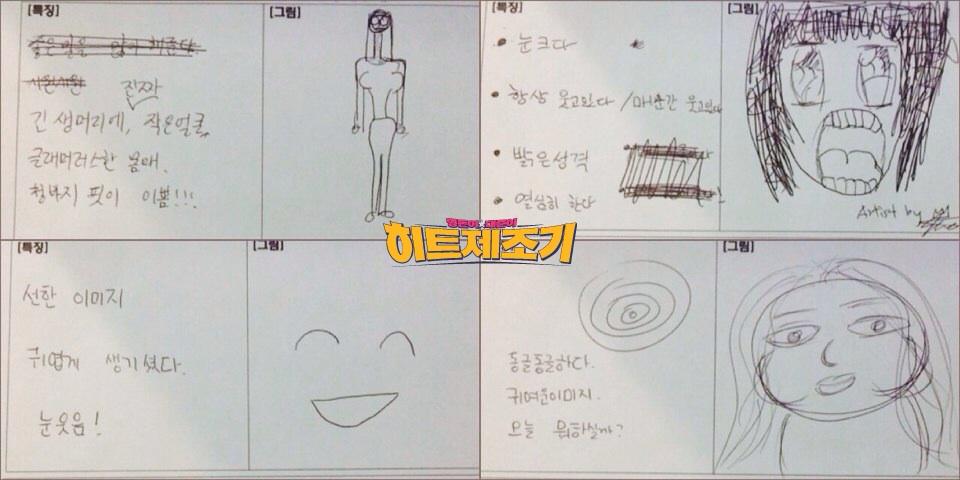 [특징]
[그림]
좋은말을 많이 해준다
시원시원
진짜
긴 생머리에, 작은얼굴,
글래머러스한 몸매.
청바지 핏이 이쁨!!!
[특징]
[그림]
• 눈크다
• 항상 웃고있다 / 매순간 웃고있다
• 밝은성격
• 열심히 한다
Artist by
형돈이와 대준이
히트제조기
[특징]
[그림]
선한 이미지
귀엽게 생기셨다.
눈웃음!
[그림]
동글동글하다.
귀여운이미지.
오늘 뭐하실까?